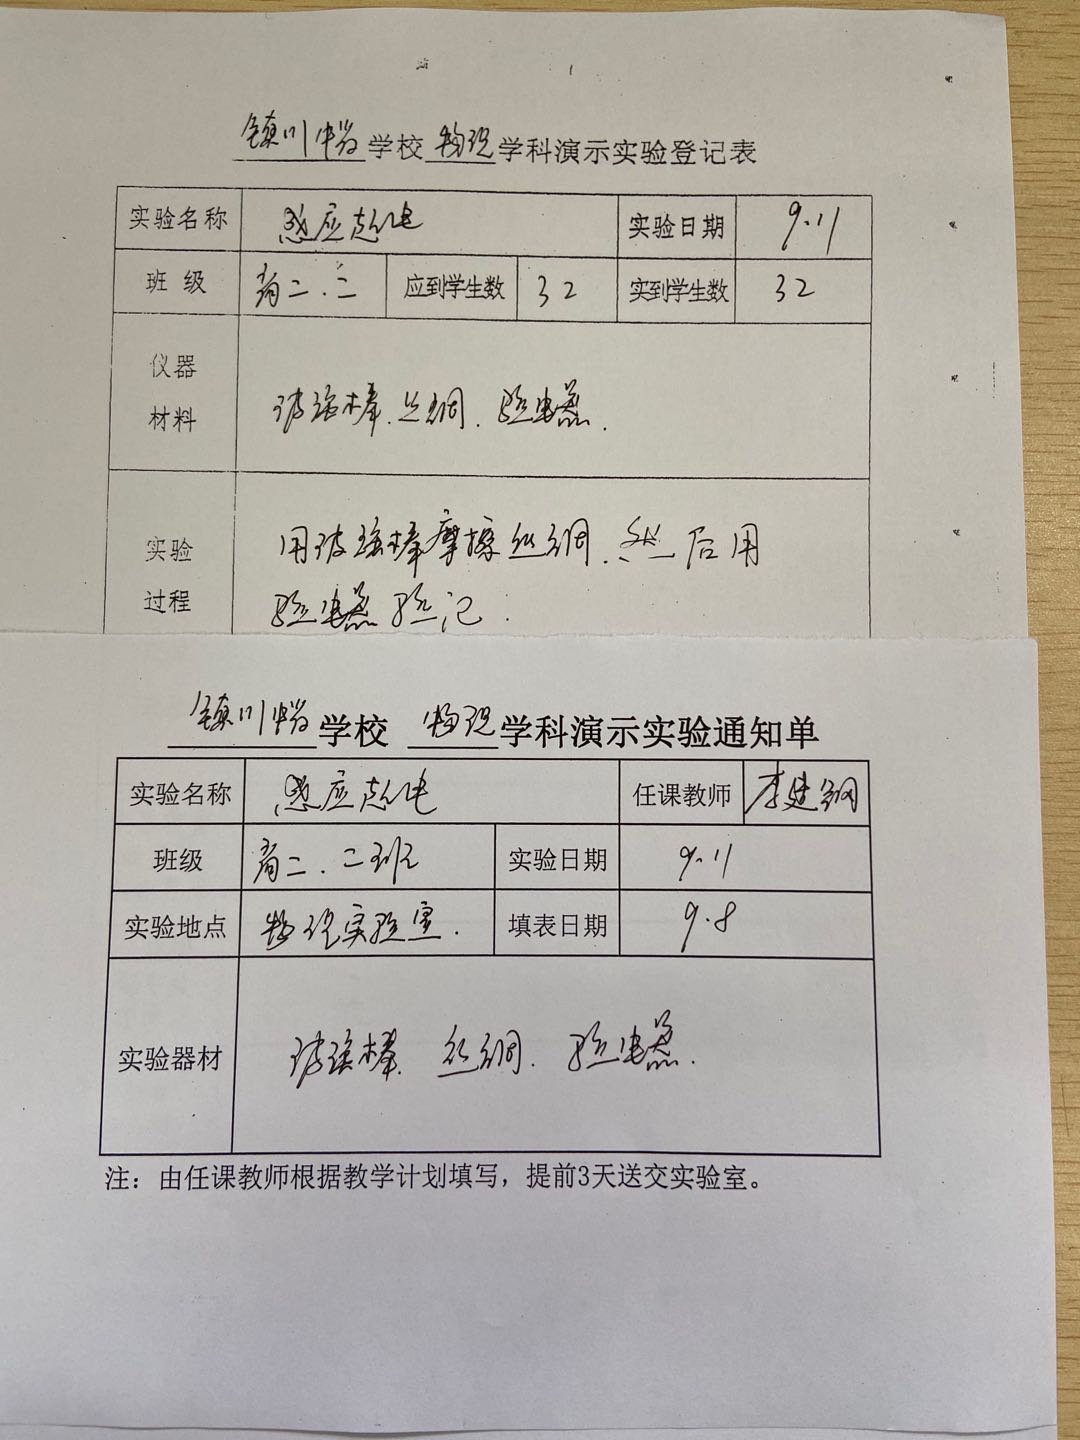 镇川中学学校物理学科演示实验登记表
实验名称 感应起电 实验日期 9.11
班级 高二.二 应到学生数 32 实到学生数 32
仪器
材料
玻璃棒.丝绸.验电器.
实验
过程
用玻璃棒摩擦丝绸.然后用
验电器验记.
镇川中学学校 物理学科演示实验通知单
实验名称 感应起电 任课教师 李建钢
班级 高二.二班 实验日期 9.11
实验地点 物理实验室. 填表日期 9.8
实验器材 玻璃棒. 丝绸. 验电器.
注：由任课教师根据教学计划填写，提前3天送交实验室。